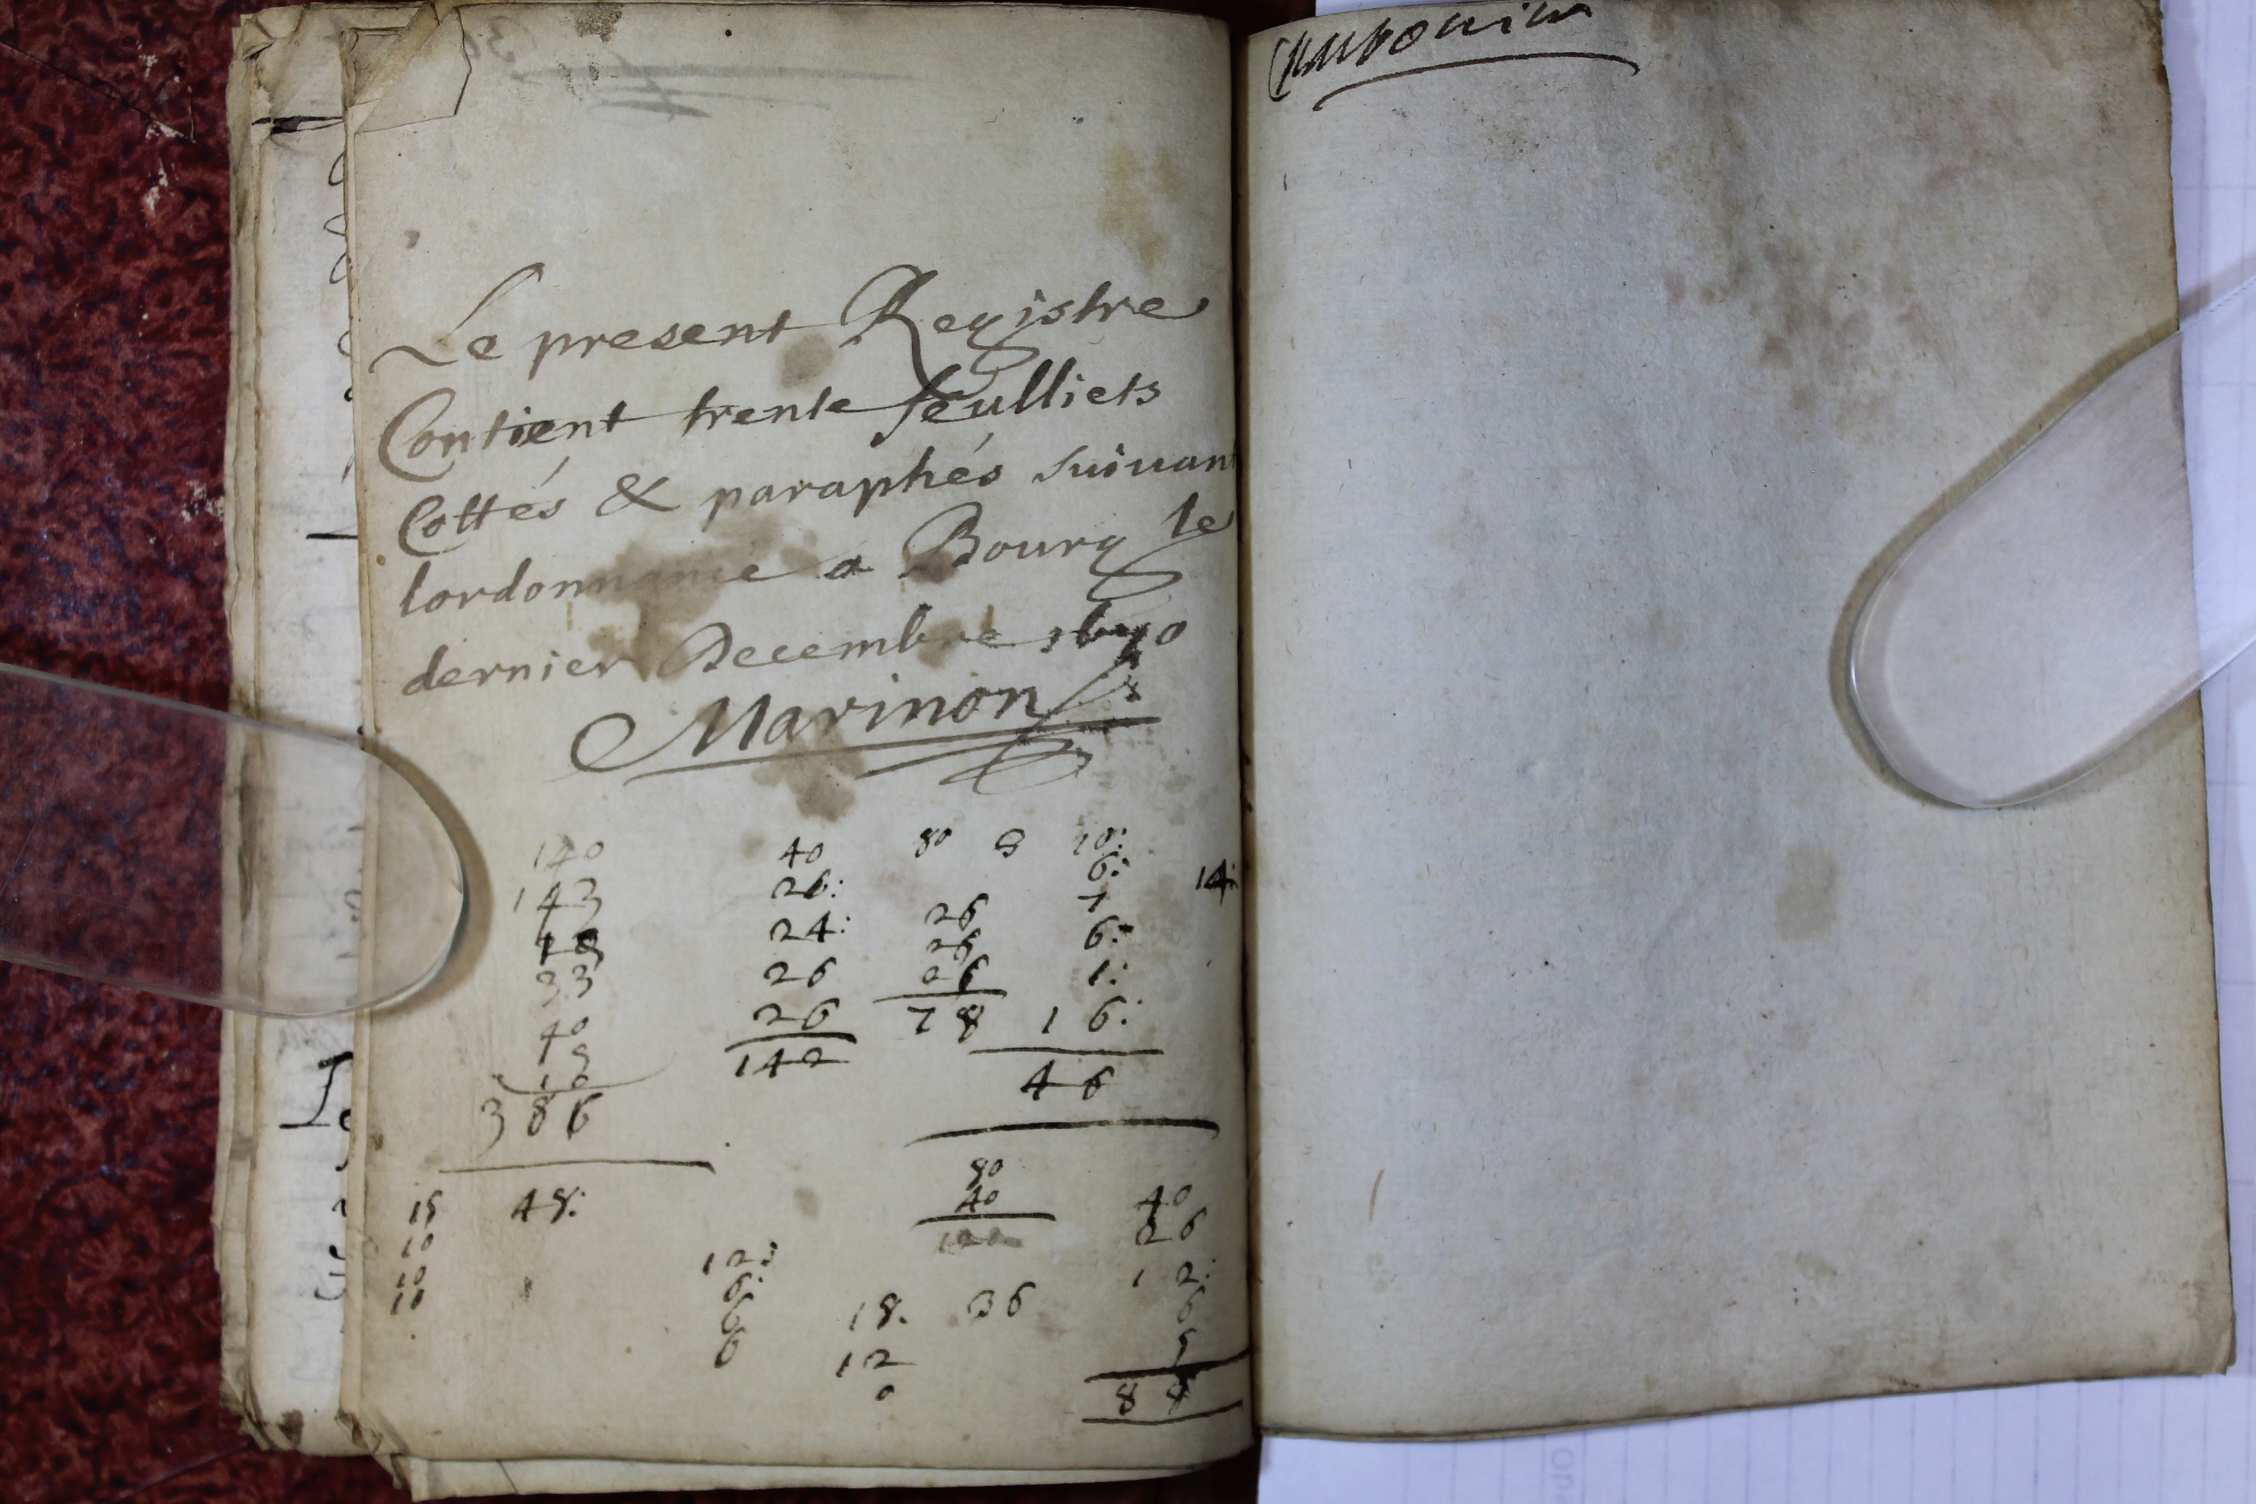 Le present Registre
Contient trente feulliets
Cottés & paraphés suiuant
lordonnance a Bourg le
dernier Decembre
Marinon
140 40 80 8 10:
143 26: 6: 14:
24: 26 7
33 26 26 6:
40 26 26 1:
142 78 1 6:
386 46
80
48: 40 40
10 26
10 12: 12:
10 6: 18. 36 6
6 12
6 0 88